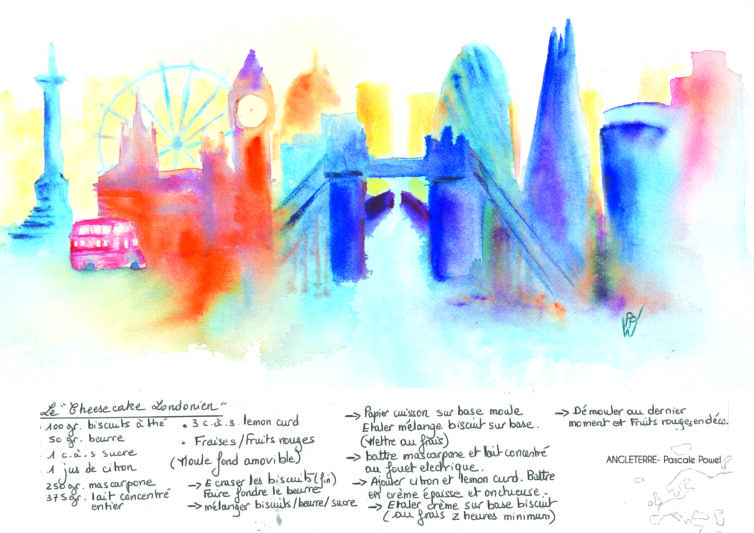 Le "Cheesecake Londonien"
100 gr. biscuits à thé
50 gr. beurre
1 c.à.s sucre
1 jus de citron
250 gr. mascarpone
375 gr. lait concentré
entier
• 3 c.à.s lemon curd
• Fraises/Fruits rouges
(Moule fond amovible)
→ Ecraser les biscuits (fin)
Faire fondre le beurre
→ mélanger biscuits/beurre/sucre
→ Papier cuisson sur base moule
Etaler mélange biscuit sur base.
(Mettre au frais)
→ battre mascarpone et lait concentré
au fouet electrique.
→ Ajouter citron et lemon curd. Battre
en crème épaisse et onctueuse.
→ Etaler crème sur base biscuit
(au frais 2 heures minimum)
→ Démouler au dernier
moment et Fruits rouges en déco.
ANGLETERRE - Pascale Powel